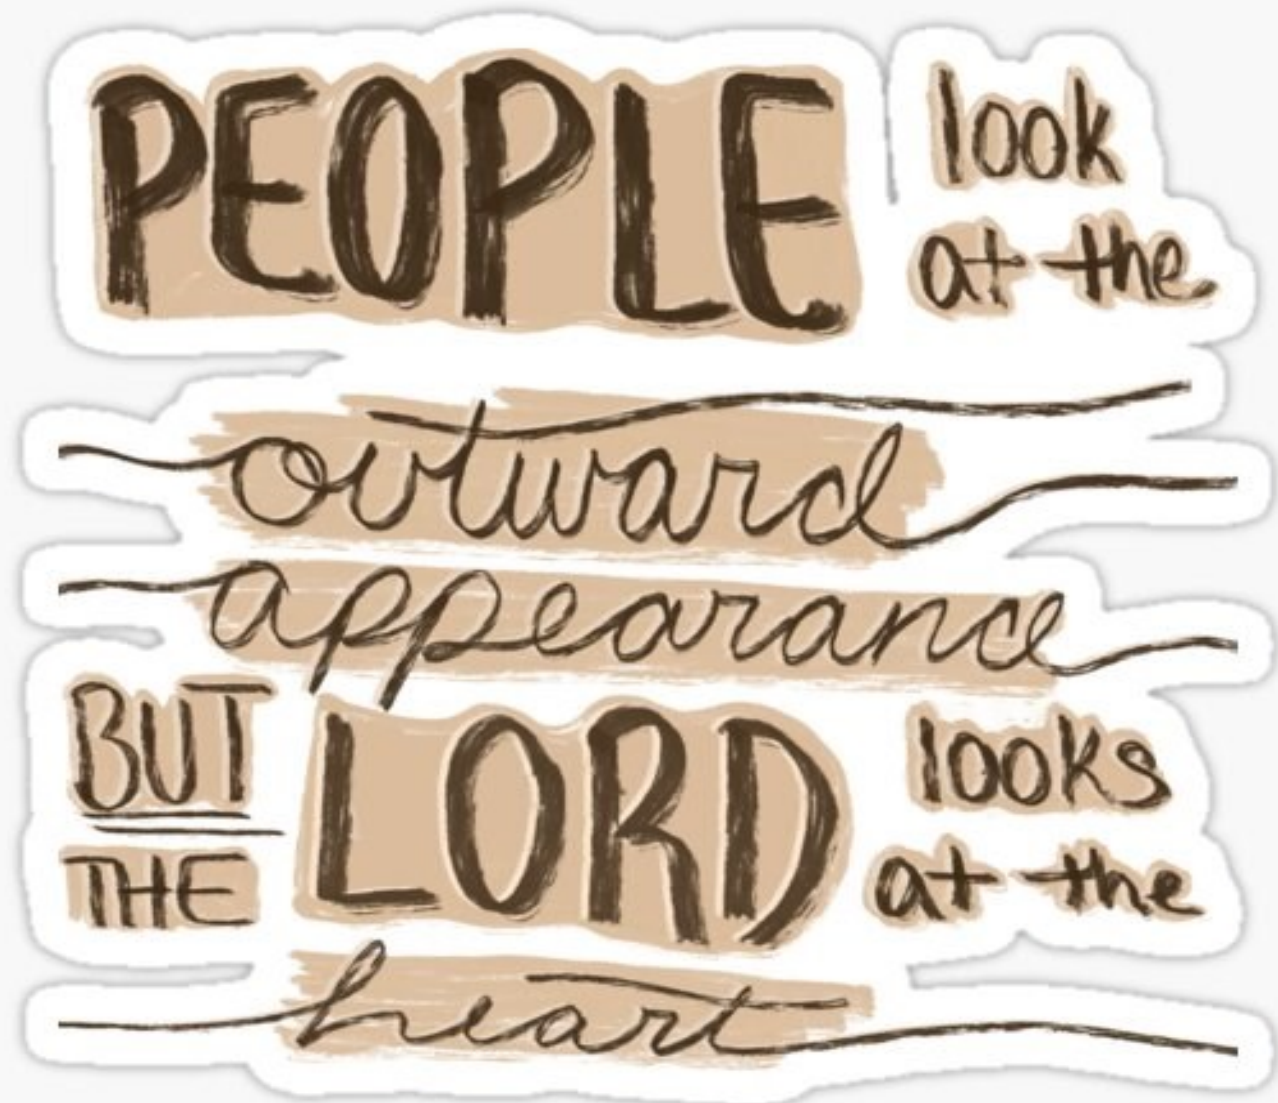 PEOPLE look
at the
outward
appearance
BUT
THE LORD looks
at the
heart